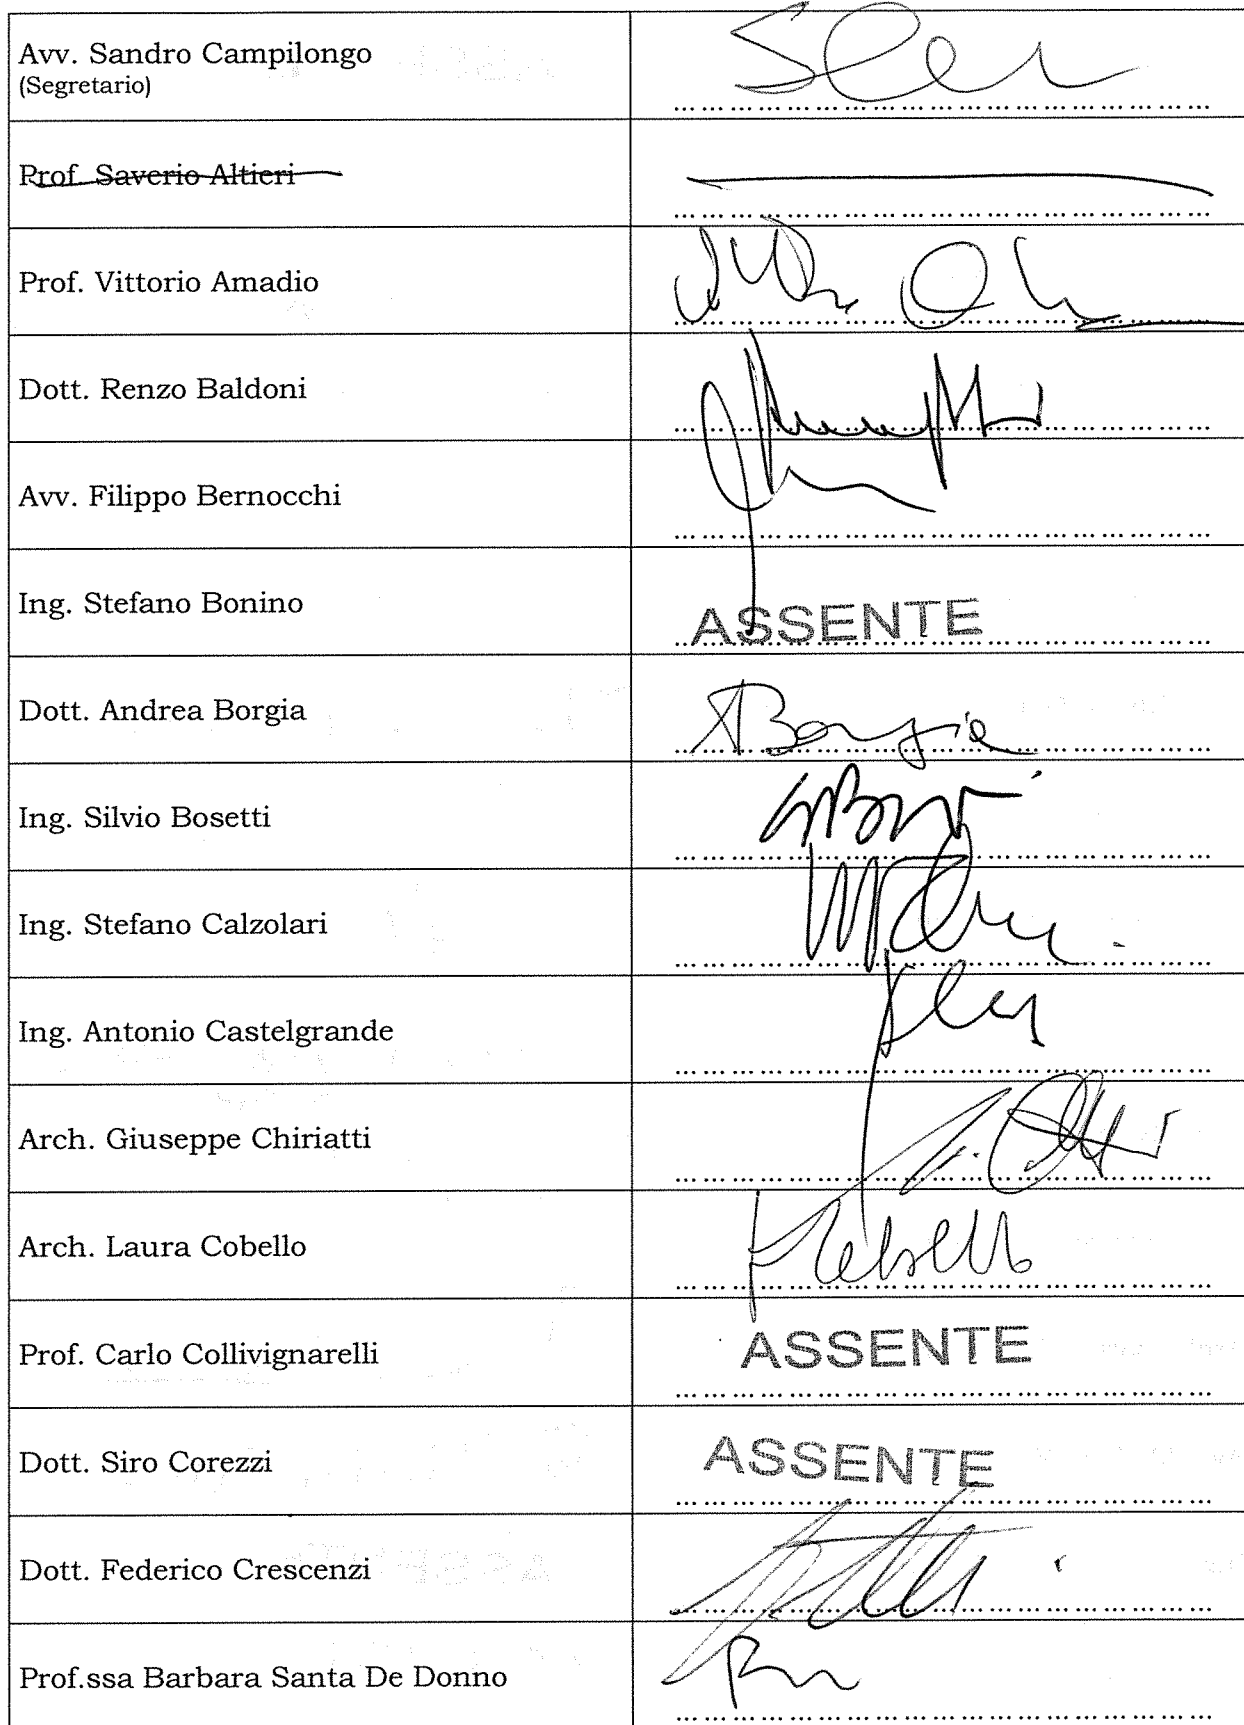 Avv. Sandro Campilongo
(Segretario)
Prof. Saverio Altieri
Prof. Vittorio Amadio
Dott. Renzo Baldoni
Avv. Filippo Bernocchi
Ing. Stefano Bonino
ASSENTE
Dott. Andrea Borgia
ABorgia
Ing. Silvio Bosetti
Ing. Stefano Calzolari
Ing. Antonio Castelgrande
Arch. Giuseppe Chiriatti
Arch. Laura Cobello
Prof. Carlo Collivignarelli
ASSENTE
Dott. Siro Corezzi
ASSENTE
Dott. Federico Crescenzi
Prof.ssa Barbara Santa De Donno